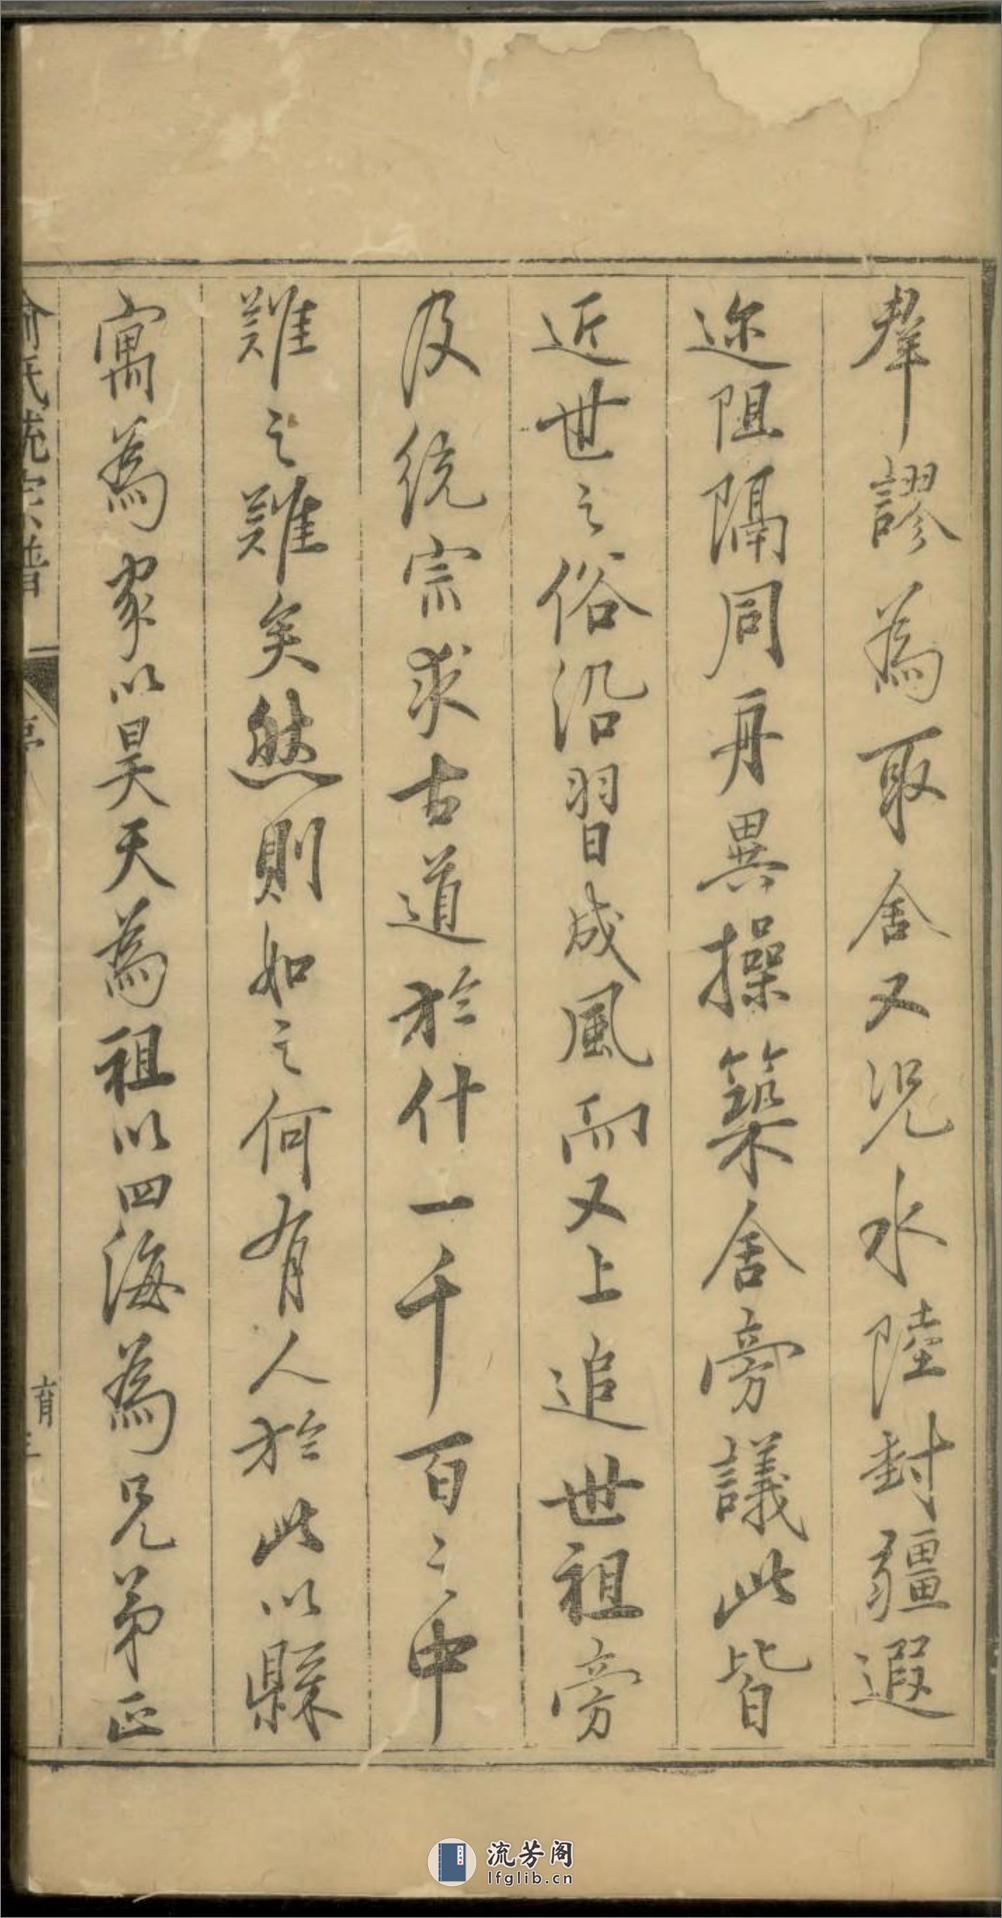 羣謬為取舍又況水陸封疆遐
迩阻隔同舟異操築舍旁議此皆
近世之俗沿習成風而又上追世祖旁
及統宗求古道於什一千百之中
難之難矣然則如之何有人於此以縣
寓為家以昊天為祖以四海為兄弟正
俞氏統宗譜
序
流芳阁
lfglib.cn